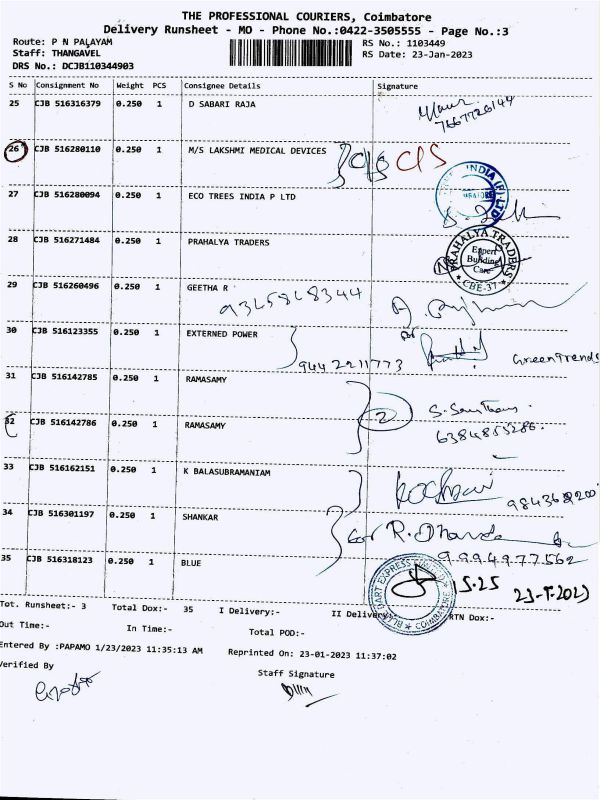 THE PROFESSIONAL COURIERS, Coimbatore
Delivery Runsheet - MO - Phone No.:0422-3505555 - Page No.:3
Route: P N PALAYAM
RS No.: 1103449
Staff: THANGAVEL
RS Date: 23-Jan-2023
DRS No.: DCJB110344903
S No Consignment No Weight PCS Consignee Details Signature
25 CJB 516316379 0.250 1 D SABARI RAJA
7667726144
26 CJB 516280110 0.250 1 M/S LAKSHMI MEDICAL DEVICES
27 CJB 516280094 0.250 1 ECO TREES INDIA P LTD
INDIA (P) LTD
28 CJB 516271484 0.250 1 PRAHALYA TRADERS
PRAHALYA TRADERS
Expert
Building
Care
CBE-37
29 CJB 516260496 0.250 1 GEETHA R
9345848344
30 CJB 516123355 0.250 1 EXTERNED POWER
9442211773
Green Trends
31 CJB 516142785 0.250 1 RAMASAMY
2
32 CJB 516142786 0.250 1 RAMASAMY
6384855286
33 CJB 516162151 0.250 1 K BALASUBRAMANIAM
34 CJB 516301197 0.250 1 SHANKAR
9994977562
35 CJB 516318123 0.250 1 BLUE
BLUE DART EXPRESS LIMITED
COIMBATORE
15:25
Tot. Runsheet:- 3 Total Dox:- 35 I Delivery:- II Delivery RTN Dox:-
Out Time:- In Time:- Total POD:-
Entered By :PAPAMO 1/23/2023 11:35:13 AM Reprinted On: 23-01-2023 11:37:02
Verified By
Staff Signature